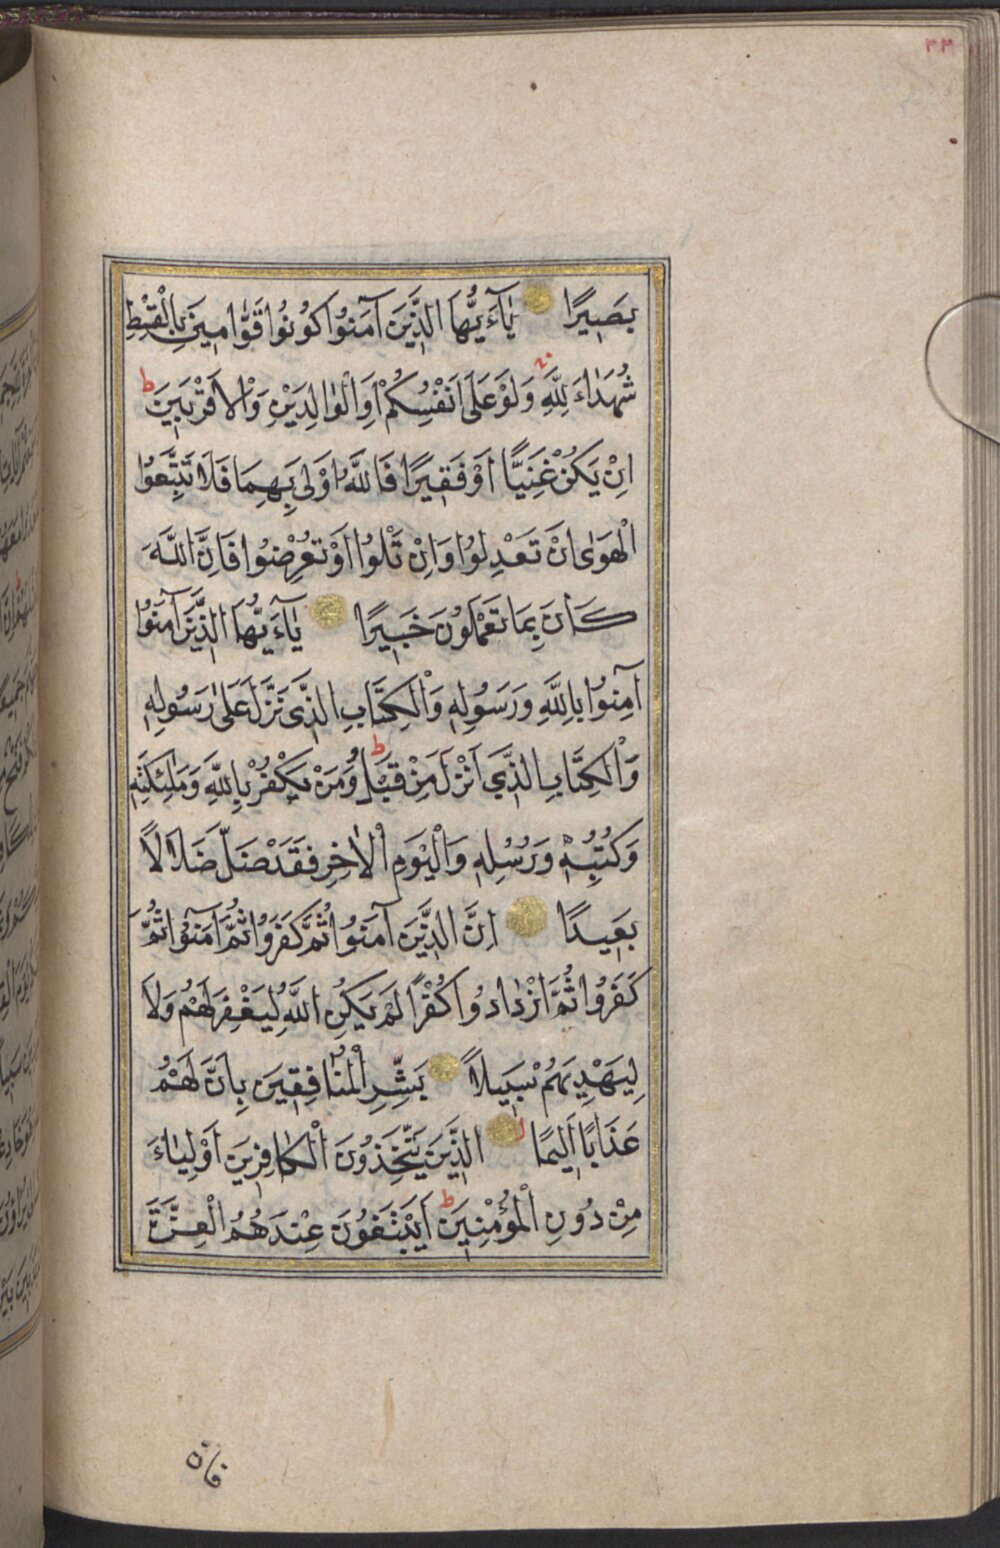 ٣٣
بَصِيرًا يَٓاءَيُّهَا الَّذِينَ آمَنُوا كُونُوا قَوَّامِينَ بِالْقِسْطِ
شُهَدَٓاءَ لِلّٰهِ وَلَوْ عَلَى اَنْفُسِكُمْ اَوِ الْوَالِدَيْنِ وَالْاَقْرَبِينَ ط
اِنْ يَكُنْ غَنِيًّا اَوْ فَقِيرًا فَاللّٰهُ اَوْلٰى بِهِمَا فَلَا تَتَّبِعُوا
الْهَوٰى اَنْ تَعْدِلُوا وَاِنْ تَلْوُا اَوْ تُعْرِضُوا فَاِنَّ اللّٰهَ
كَانَ بِمَا تَعْمَلُونَ خَبِيرًا يَٓاءَيُّهَا الَّذِينَ آمَنُوا
آمِنُوا بِاللّٰهِ وَرَسُولِهِ وَالْكِتَابِ الَّذِي نَزَّلَ عَلٰى رَسُولِهِ
وَالْكِتَابِ الَّذِي اَنْزَلَ مِنْ قَبْلُ ط وَمَنْ يَكْفُرْ بِاللّٰهِ وَمَلٰئِكَتِهِ
وَكُتُبِهِ وَرُسُلِهِ وَالْيَوْمِ الْاٰخِرِ فَقَدْ ضَلَّ ضَلَالًا
بَعِيدًا اِنَّ الَّذِينَ آمَنُوا ثُمَّ كَفَرُوا ثُمَّ آمَنُوا ثُمَّ
كَفَرُوا ثُمَّ ازْدَادُوا كُفْرًا لَمْ يَكُنِ اللّٰهُ لِيَغْفِرَ لَهُمْ وَلَا
لِيَهْدِيَهُمْ سَبِيلًا بَشِّرِ الْمُنَافِقِينَ بِاَنَّ لَهُمْ
عَذَابًا اَلِيمًا لا الَّذِينَ يَتَّخِذُونَ الْكَافِرِينَ اَوْلِيَٓاءَ
مِنْ دُونِ الْمُؤْمِنِينَ ط اَيَبْتَغُونَ عِنْدَهُمُ الْعِزَّةَ
فان